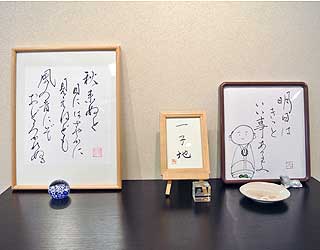 秋来ぬと
目にはさやかに
見えねども
風の音にぞ
おどろかれぬる
一子地
明日は
きっと
いい事あるよ